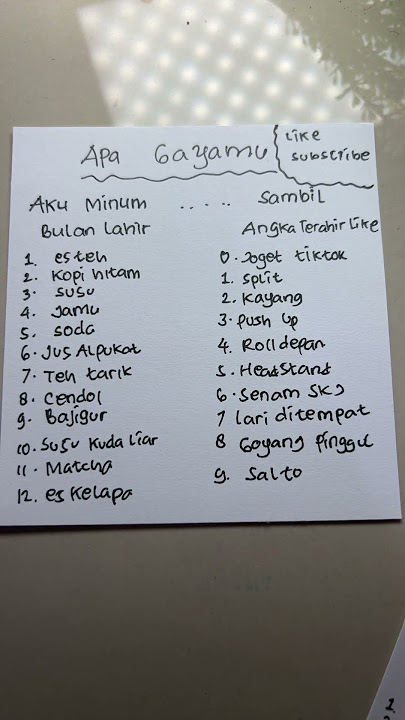 Apa Gayamu
Like
Subscribe
Aku Minum .... Sambil
Bulan Lahir
1. es teh
2. Kopi hitam
3. Susu
4. Jamu
5. Soda
6. Jus Alpukat
7. Teh tarik
8. Cendol
9. Bajigur
10. Susu Kuda Liar
11. Matcha
12. es Kelapa
Angka Terahir Like
0. Joget tiktok
1. Split
2. Kayang
3. Push Up
4. Roll depan
5. Head Stand
6. Senam SKJ
7 lari ditempat
8 Goyang Pinggul
9. Salto